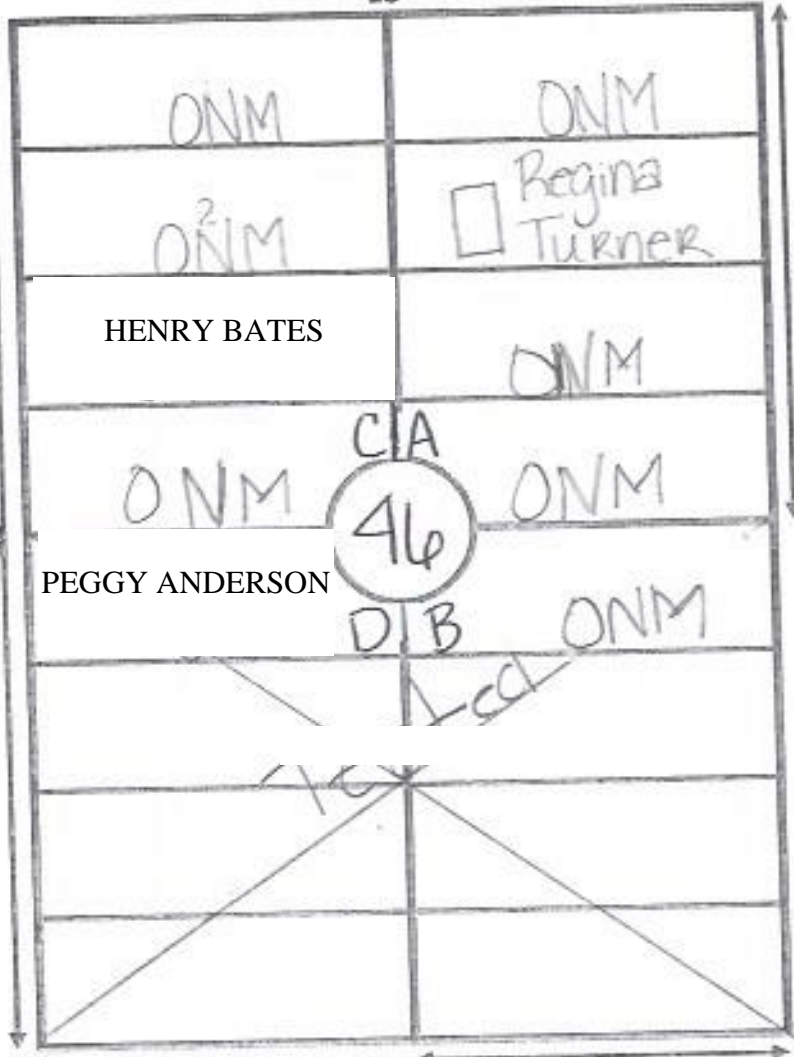 ONM ONM
2
ONM
Regina
Turner
HENRY BATES
ONM
C A
ONM ONM
46
PEGGY ANDERSON
D B
ONM